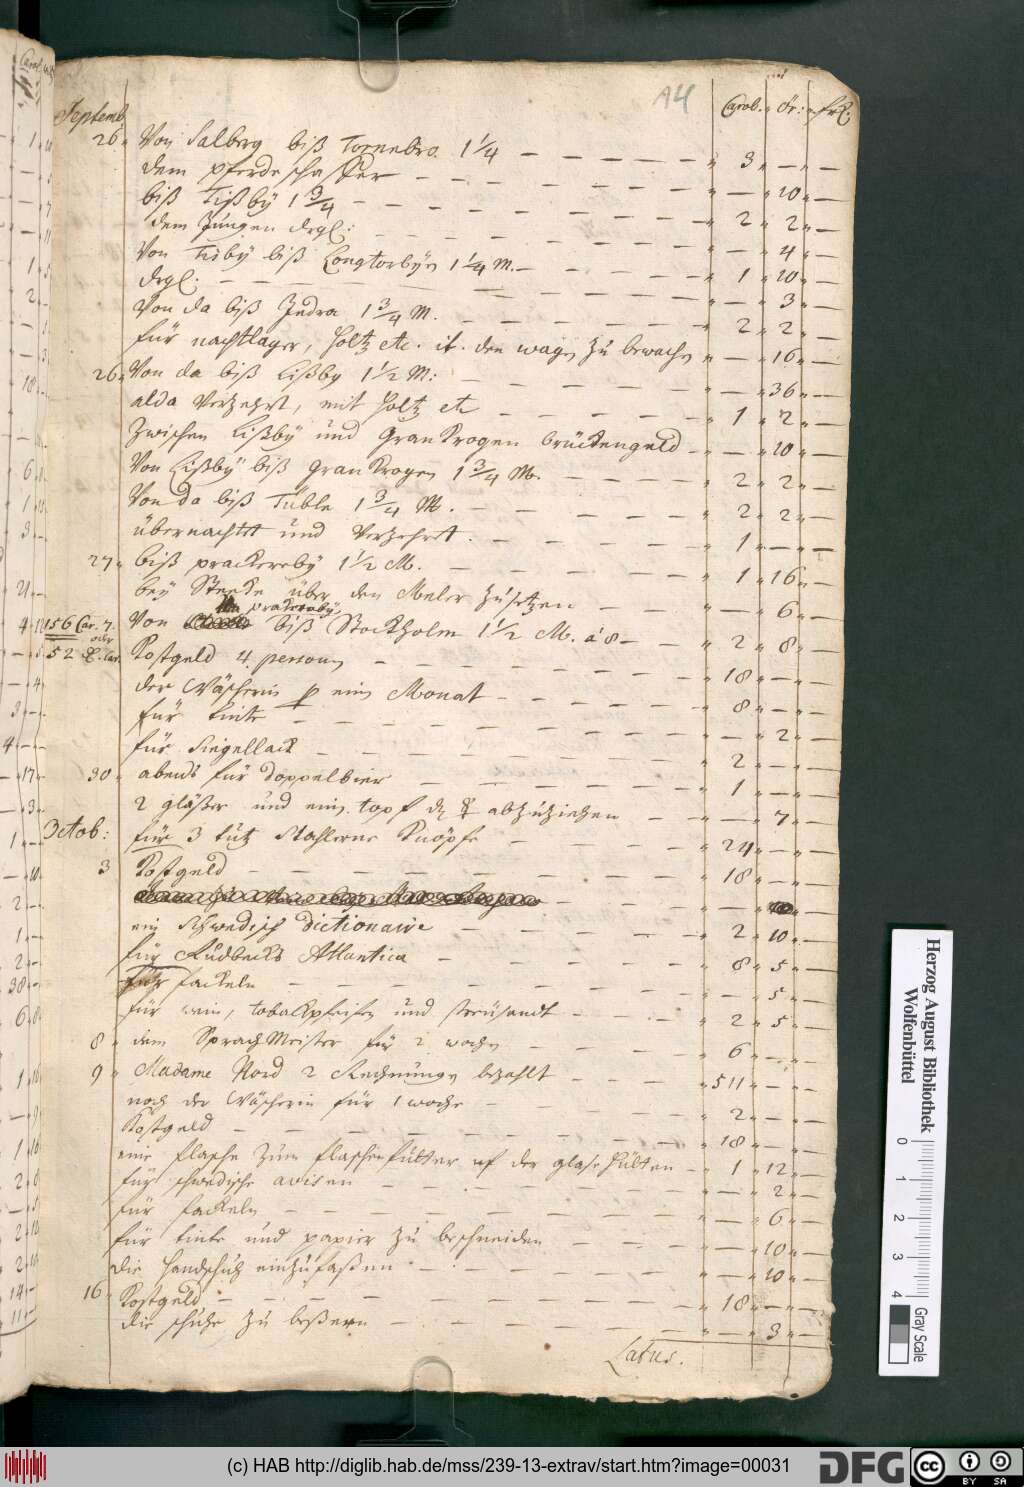 A4
Septemb. Carol. ör: 
26. Von Salberg biß Tornebro. 1 1/4 — 3 — —
dem pferdeschaffer — — 10 —
biß Tißby 1 3/4 — 2 2 —
dem Jungen drgl: — — 4 —
Von Tisby biß Longtorbyn 1 1/4 M. — 1 10 —
drgl: — — 3 —
Von da biß Indra 1 3/4 M. — 2 2 —
für nachtlager, holtz etc. it. den wagen zu bewachen — 16 —
26. Von da biß Lißby 1 1/2 M: — — 36 —
alda Verzehrt, mit holtz etc — 1 2 —
Zwischen Lißby und Gran Krogen brückengeld — — 10 —
Von Lißby biß Gran Krogen 1 3/4 M. — 2 2 —
Von da biß Tuble 1 3/4 M. — 2 2 —
übernachtet und Verzehret. — 1 — —
27. biß prackereby 1 1/2 M. — 1 16 —
bey Stecke über den Meler zu setzen — — 6 —
prackereby
156 Car. 7. Von biß Stockholm 1 1/2 M. à 8 — 2 8 —
oder
52 Car. Kostgeld 4. personen — 18 — —
der Wäscherin p ein Monat — 8 — —
für tinte — — 2 —
für Siegellack — 2 — —
30 abends für doppelbier — 1 — —
2 gläßer und ein topf abzuziehen — — 7 —
Octob: für 3 dutz Stahlerne Knöpfe — 24 — —
3 Kostgeld — 18 — —
ein Schwedisch dictionaire — 2 10 —
für Rudbecks Atlantica — 8 5 —
für fackeln — — 5 —
für wein, tobackpfeifen und streusandt — 2 5 —
8 dem SprachMeister für 2 wochen — 6 — —
9 Madame Nord 2 Rechnungen bezahlt — 511 — —
noch der Wäscherin für 1 woche — 2 — —
Kostgeld — 18 — —
eine flasche zum flaschenfutter uf der glase hütten — 1 12 —
für schwedische avisen — — 2 —
für fackeln — — 6 —
für tinte und papier zu beschneiden — — 10 —
die handschuh einzufaßen — — 10 —
16 Kostgeld — 18 — —
die schuhe zu beßern — — 3 —
Latus.
Herzog August Bibliothek
Wolfenbüttel
0 1 2 3 4
Gray Scale
(c) HAB http://diglib.hab.de/mss/239-13-extrav/start.htm?image=00031
DFG
cc BY SA